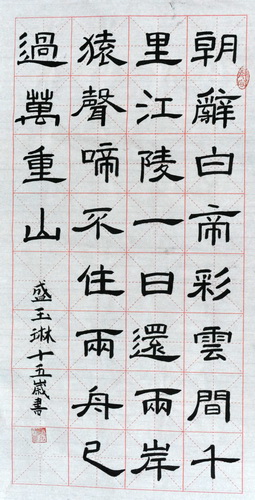 朝辭白帝彩雲間千
里江陵一日還兩岸
猿聲啼不住兩舟已
過萬重山
盛玉琳十五歲書